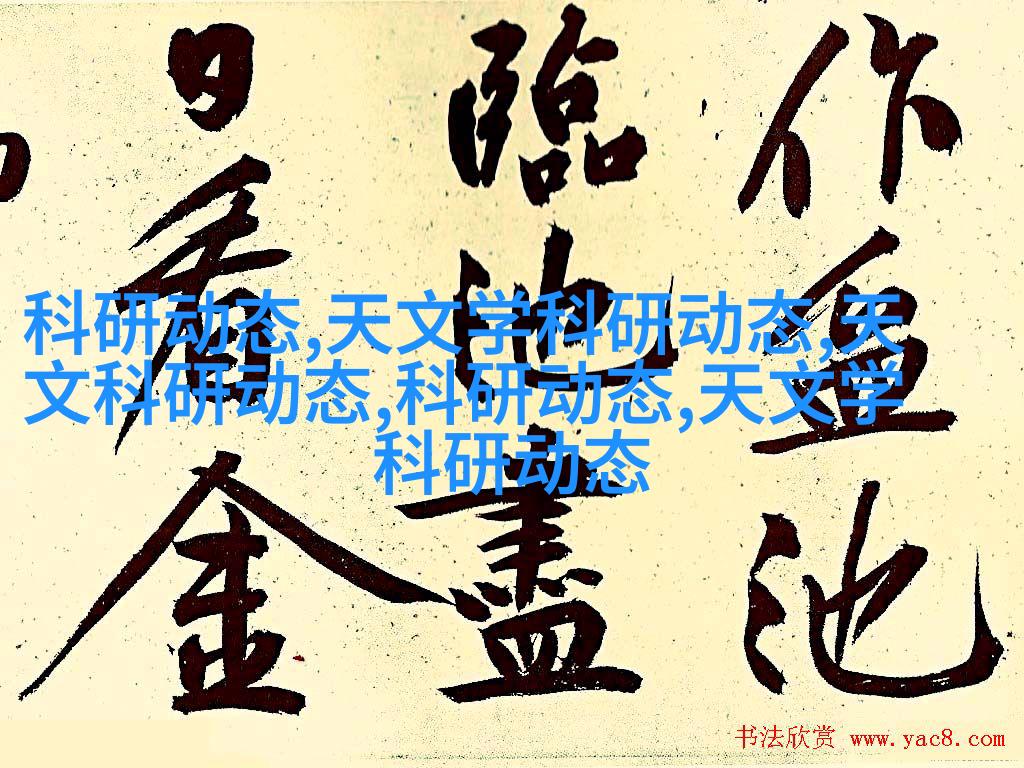 作盆池
臨池盡
日看金
科研动态,天文学科研动态,天
文科研动态,科研动态,天文学
科研动态
书法欣赏 www.yac8.com